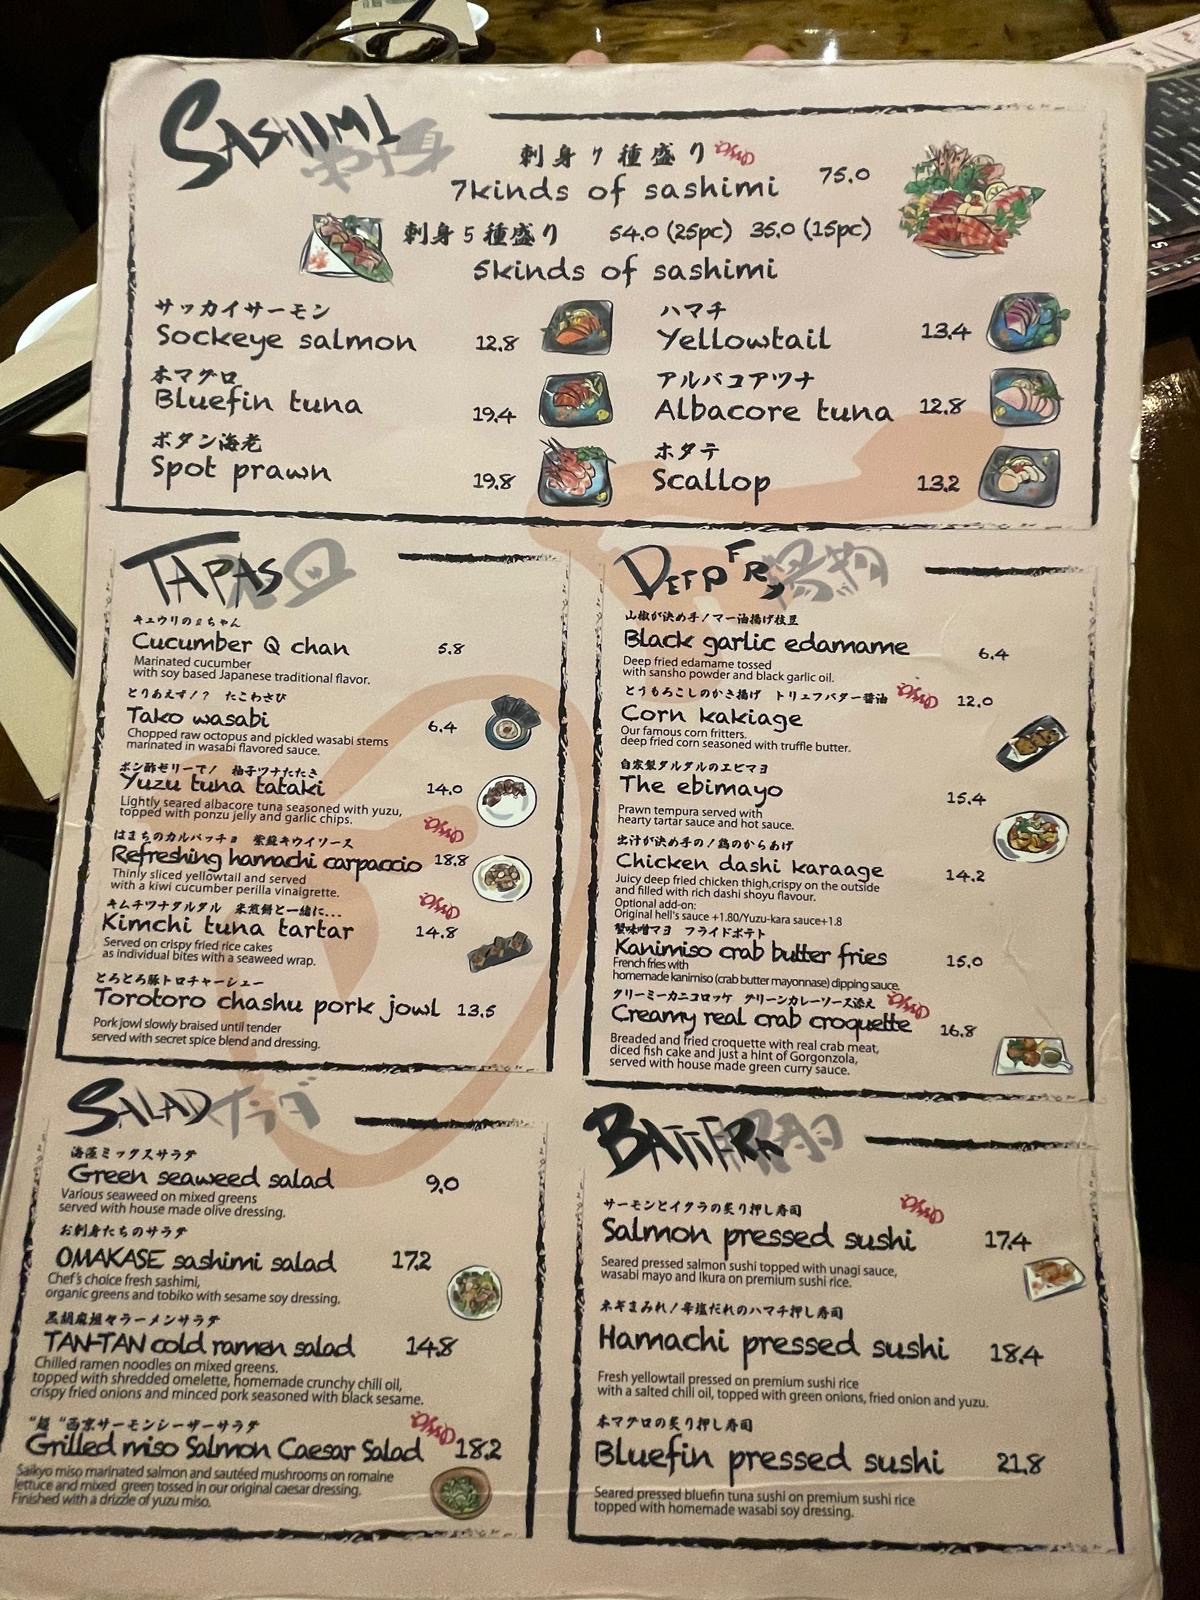 SASHIMI 刺身
刺身7種盛り
7kinds of sashimi 75.0
刺身5種盛り 54.0 (25pc) 35.0 (15pc)
5kinds of sashimi
サッカイサーモン
Sockeye salmon 12.8
本マグロ
Bluefin tuna 19.4
ボタン海老
Spot prawn 19.8
ハマチ
Yellowtail 13.4
アルバコアツナ
Albacore tuna 12.8
ホタテ
Scallop 13.2
TAPAS
キュウリのQちゃん
Cucumber Q chan 5.8
Marinated cucumber
with soy based Japanese traditional flavor.
とりあえず!? たこわさび
Tako wasabi 6.4
Chopped raw octopus and pickled wasabi stems
marinated in wasabi flavored sauce.
ポン酢ゼリーで! 柚子ツナたたき
Yuzu tuna tataki 14.0
Lightly seared albacore tuna seasoned with yuzu,
topped with ponzu jelly and garlic chips.
はまちのカルパッチョ 紫蘇キウイソース
Refreshing hamachi carpaccio 18.8
Thinly sliced yellowtail and served
with a kiwi cucumber perilla vinaigrette.
キムチツナタルタル 米煎餅と一緒に...
Kimchi tuna tartar 14.8
Served on crispy fried rice cakes
as individual bites with a seaweed wrap.
とろとろ豚トロチャーシュー
Torotoro chashu pork jowl 13.5
Pork jowl slowly braised until tender
served with secret spice blend and dressing.
DEEP FRY 揚物
山椒が決め手!マー油揚げ枝豆
Black garlic edamame 6.4
Deep fried edamame tossed
with sansho powder and black garlic oil.
とうもろこしのかき揚げ トリュフバター醤油
Corn kakiage 12.0
Our famous corn fritters.
deep fried corn seasoned with truffle butter.
自家製タルタルのエビマヨ
The ebimayo 15.4
Prawn tempura served with
hearty tartar sauce and hot sauce.
出汁が決め手の!鶏のからあげ
Chicken dashi karaage 14.2
Juicy deep fried chicken thigh,crispy on the outside
and filled with rich dashi shoyu flavour.
Optional add-on:
Original hell's sauce +1.80/Yuzu-kara sauce+1.8
蟹味噌マヨ フライドポテト
Kanimiso crab butter fries 15.0
French fries with
homemade kanimiso (crab butter mayonnase) dipping sauce.
クリーミーカニコロッケ グリーンカレーソース添え
Creamy real crab croquette 16.8
Breaded and fried croquette with real crab meat,
diced fish cake and just a hint of Gorgonzola,
served with house made green curry sauce.
SALAD サラダ
海藻ミックスサラダ
Green seaweed salad 9.0
Various seaweed on mixed greens
served with house made olive dressing.
お刺身たちのサラダ
OMAKASE sashimi salad 17.2
Chef's choice fresh sashimi,
organic greens and tobiko with sesame soy dressing.
黒胡麻坦々ラーメンサラダ
TAN-TAN cold ramen salad 14.8
Chilled ramen noodles on mixed greens.
topped with shredded omelette, homemade crunchy chili oil,
crispy fried onions and minced pork seasoned with black sesame.
"超"西京サーモンシーザーサラダ
Grilled miso Salmon Caesar Salad 18.2
Saikyo miso marinated salmon and sautéed mushrooms on romaine
lettuce and mixed green tossed in our original caesar dressing.
Finished with a drizzle of yuzu miso.
BATTERA
サーモンとイクラの炙り押し寿司
Salmon pressed sushi 17.4
Seared pressed salmon sushi topped with unagi sauce,
wasabi mayo and Ikura on premium sushi rice.
ネギまみれ!辛塩だれのハマチ押し寿司
Hamachi pressed sushi 18.4
Fresh yellowtail pressed on premium sushi rice
with a salted chili oil, topped with green onions, fried onion and yuzu.
本マグロの炙り押し寿司
Bluefin pressed sushi 21.8
Seared pressed bluefin tuna sushi on premium sushi rice
topped with homemade wasabi soy dressing.